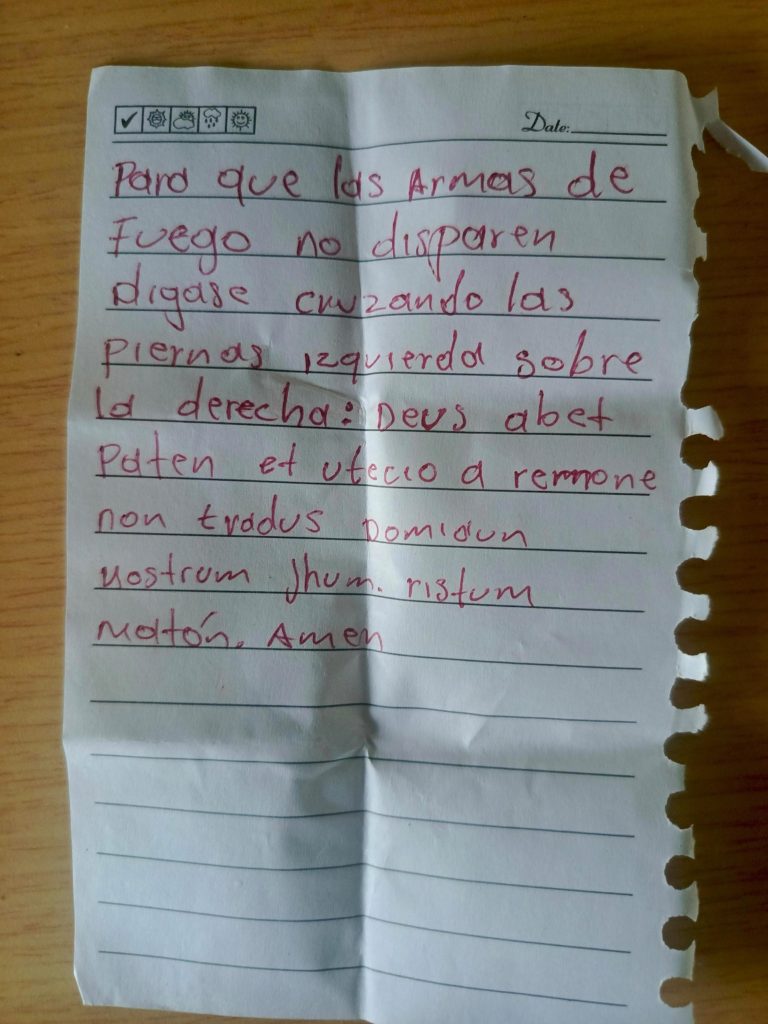 Date:
Para que las Armas de
Fuego no disparen
digase cruzando las
piernas izquierda sobre
la derecha: Deus abet
Paten et utecio a remone
non tradus Domidun
nostrum Jhum. ristum
Matón. Amen